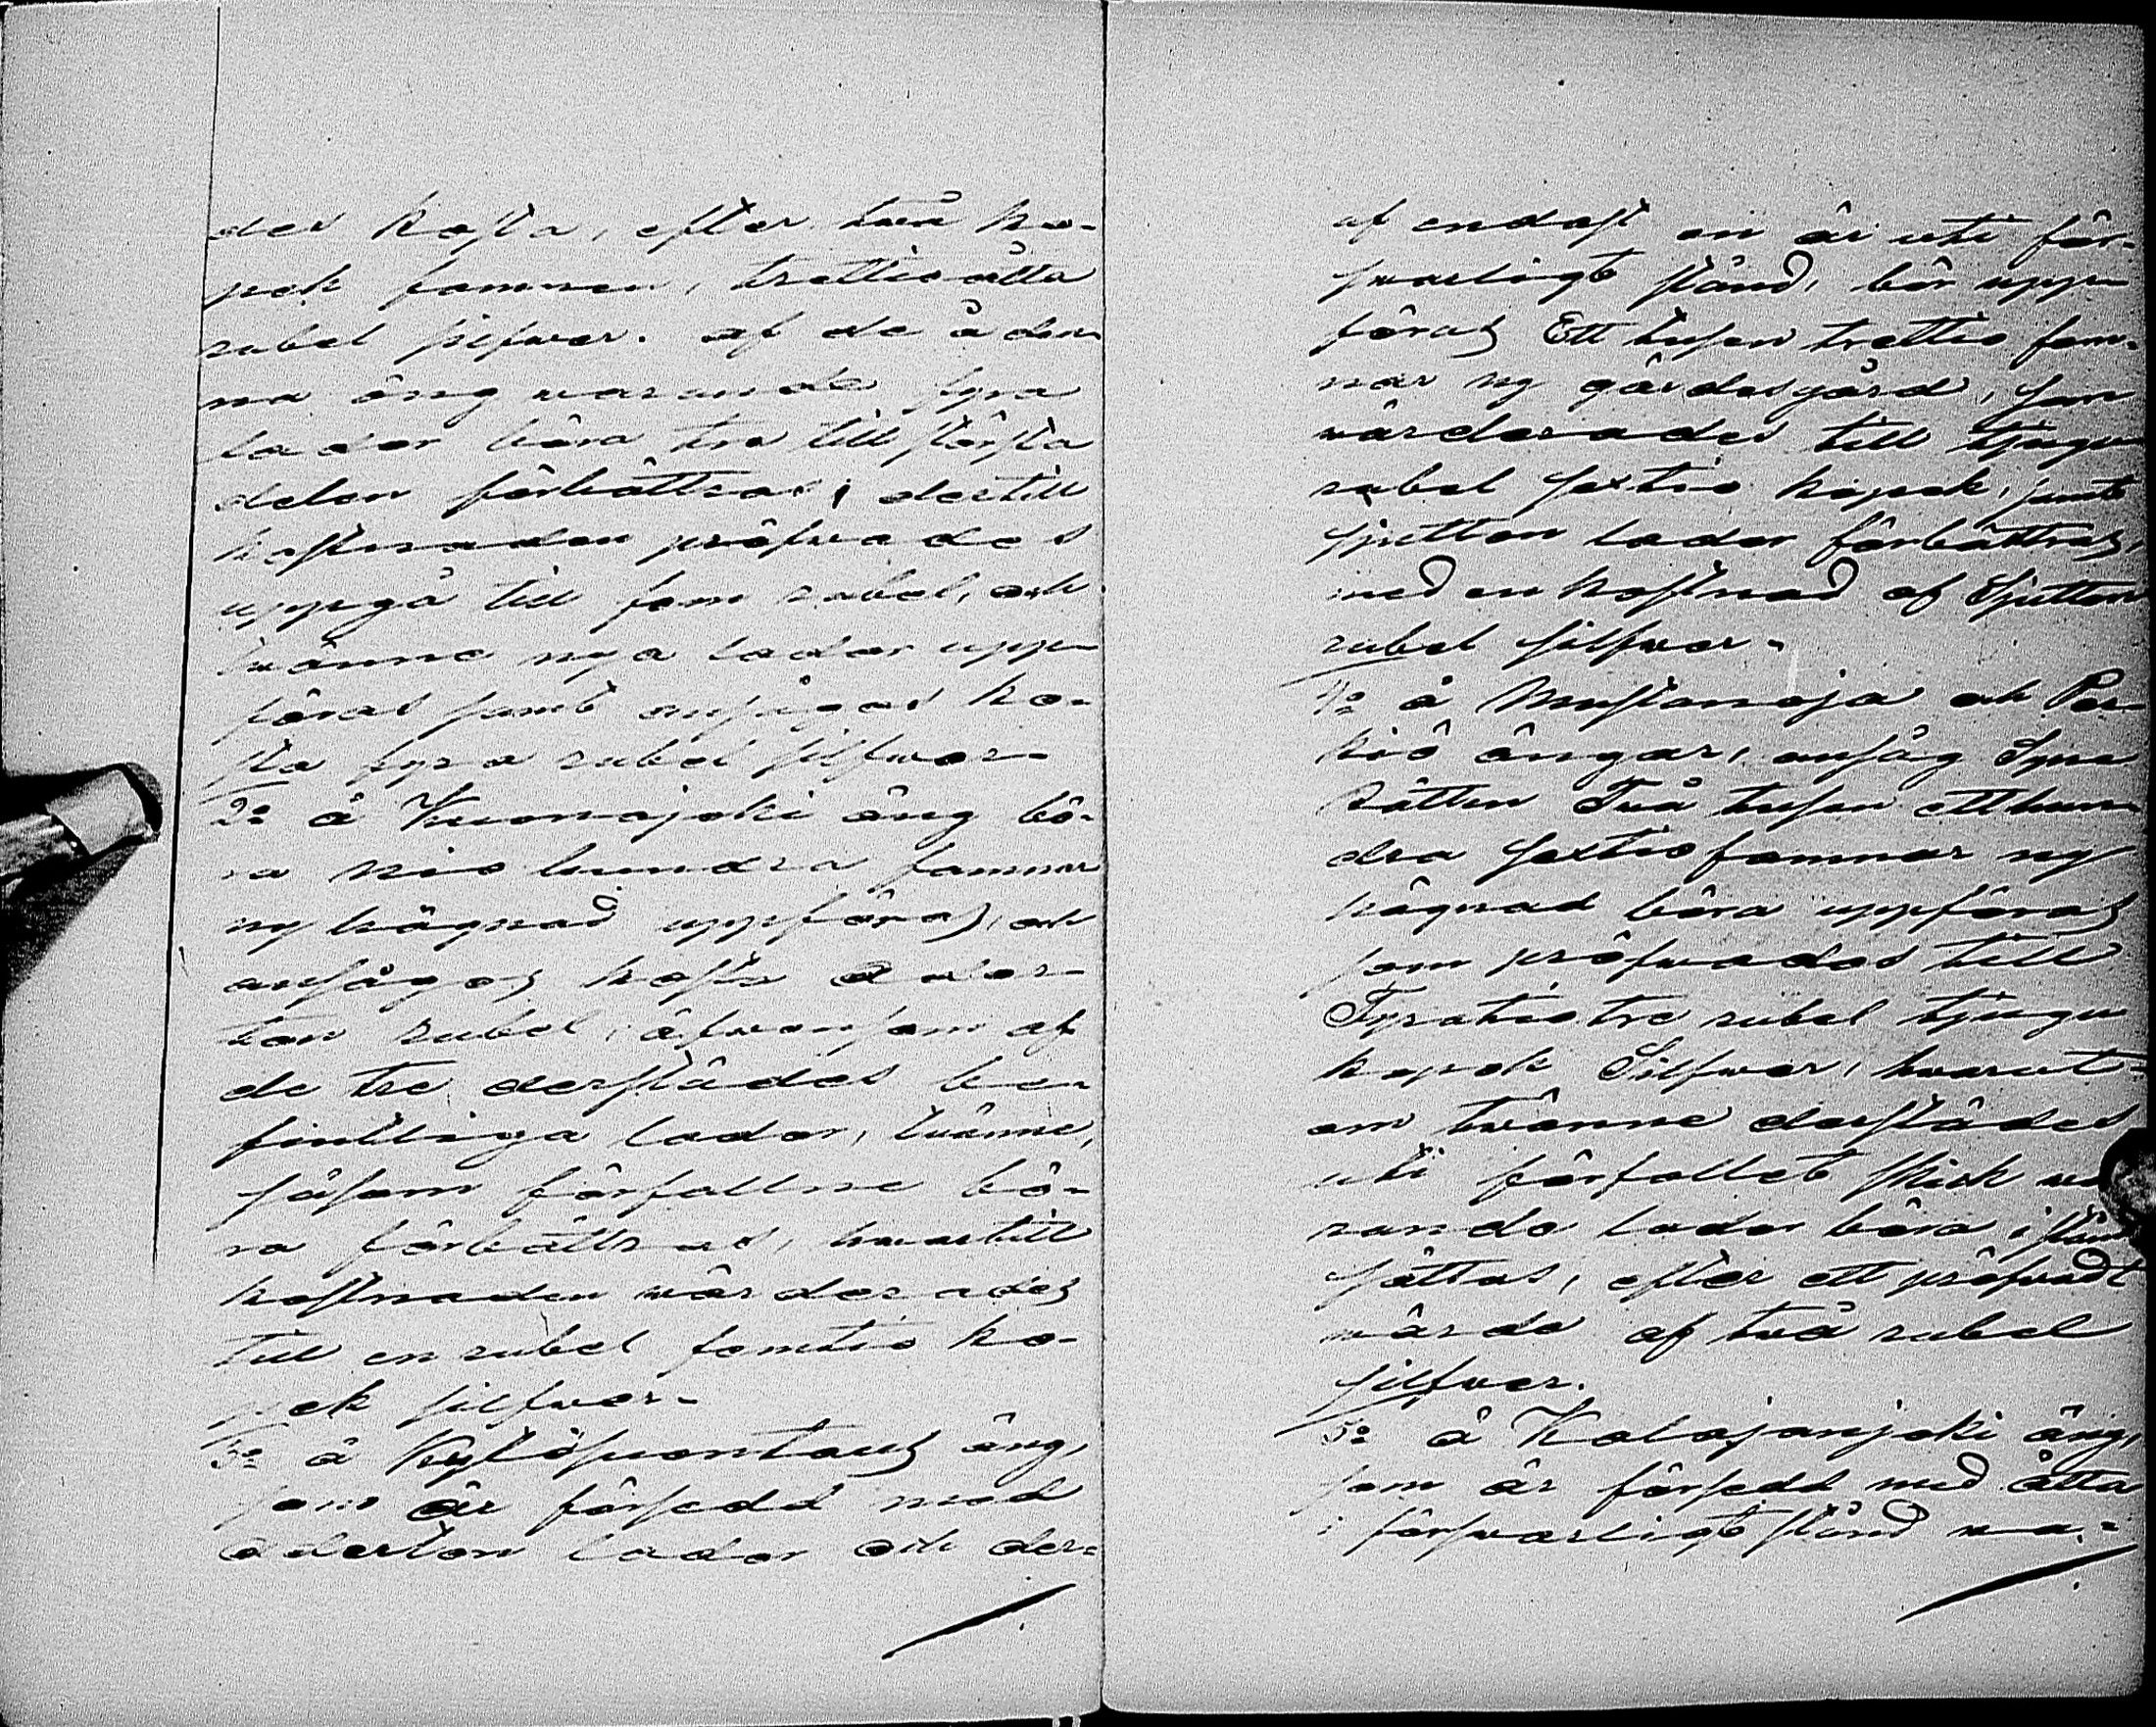 des kosta, efter två ko-
pek famnen, trettioåtta
rubel silfwer. af de å den-
na äng warande fyra
lador böra tre till största
delen förbättras, dertill
kostnaden pröfwades
uppgå till fem rubel, och
twänne nya lador upp-
föras samt ansågos ko-
sta fyra rubel silfwer.
2o å Kuonajoki äng bö-
ra nio hundra famnar
ny hägnad uppföras, och
ansågos kosta ader-
ton rubel, äfwensom af
de tre derstädes be-
fintliga lador, twänne,
såsom förfallne bö-
ra förbättras, hwartill
kostnaden wärderades
till en rubel femtio ko-
pek silfwer.
3o å äng,
som är försedd med
aderton lador och der-
af endast en är uti för-
swarligt stånd, bör upp-
föras Ett tusen trettio fam-
nar ny gärdesgård, som
wärderades till tjugu
rubel sextio kopek, samt
sjutton lador förbättras,
med en kostnad af Sjutton
rubel silfwer.
4o å Mustanoja och Per-
kiö ängar, ansåg Syne
Rätten Två tusen ett hun-
dra sextio famnar ny
hägnad böra uppföras
som pröfwades till
Fyratiotre rubel tjugu
kopek Silfwer, hwarut-
om twänne derstädes
uti förfallet skick wa
rande lador böra i stånd
sättas, efter ett pröfwadt
wärde af två rubel
silfwer.
5o å Kalajanjoki äng,
som är försedd med åtta
i förswarligt stånd wa-